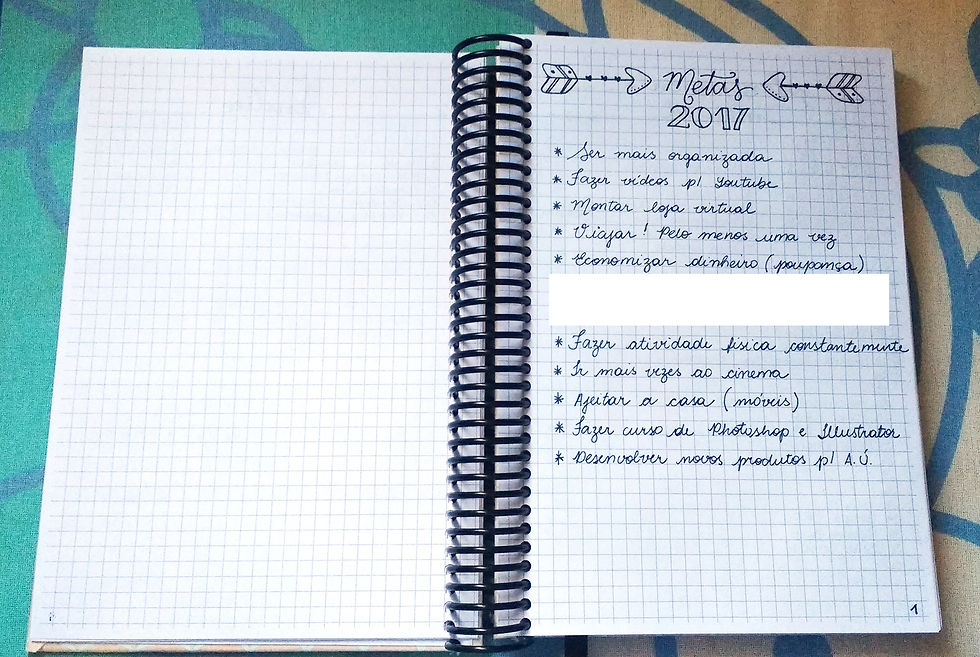 Metas
2017
* Ser mais organizada
* Fazer vídeos p/ Youtube
* Montar loja virtual
* Viajar! Pelo menos uma vez
* Economizar dinheiro (poupança)
* Fazer atividade física constantemente
* Ir mais vezes ao cinema
* Ajeitar a casa (móveis)
* Fazer curso de Photoshop e Illustrator
* Desenvolver novos produtos p/ A.Ú.
1